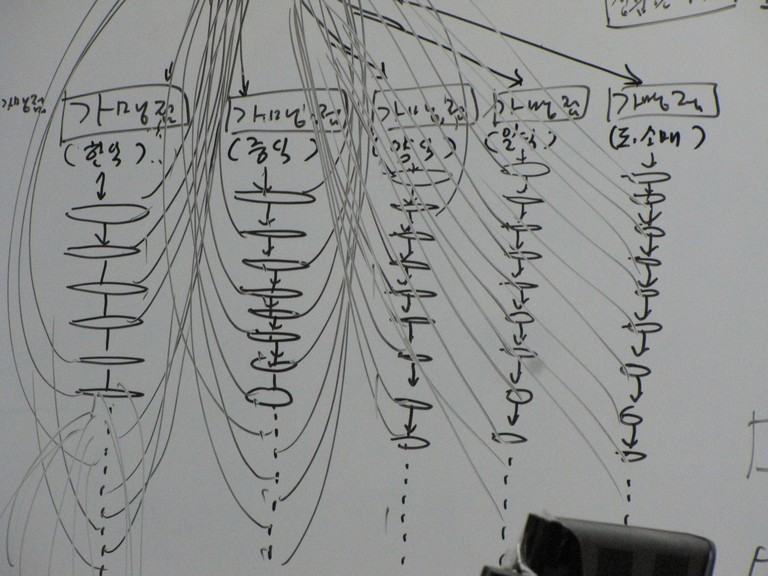 가맹점 가맹점 가맹점 가맹점 가맹점 가맹점
(한식).. (중식) (양식) (일식) (도.소매)